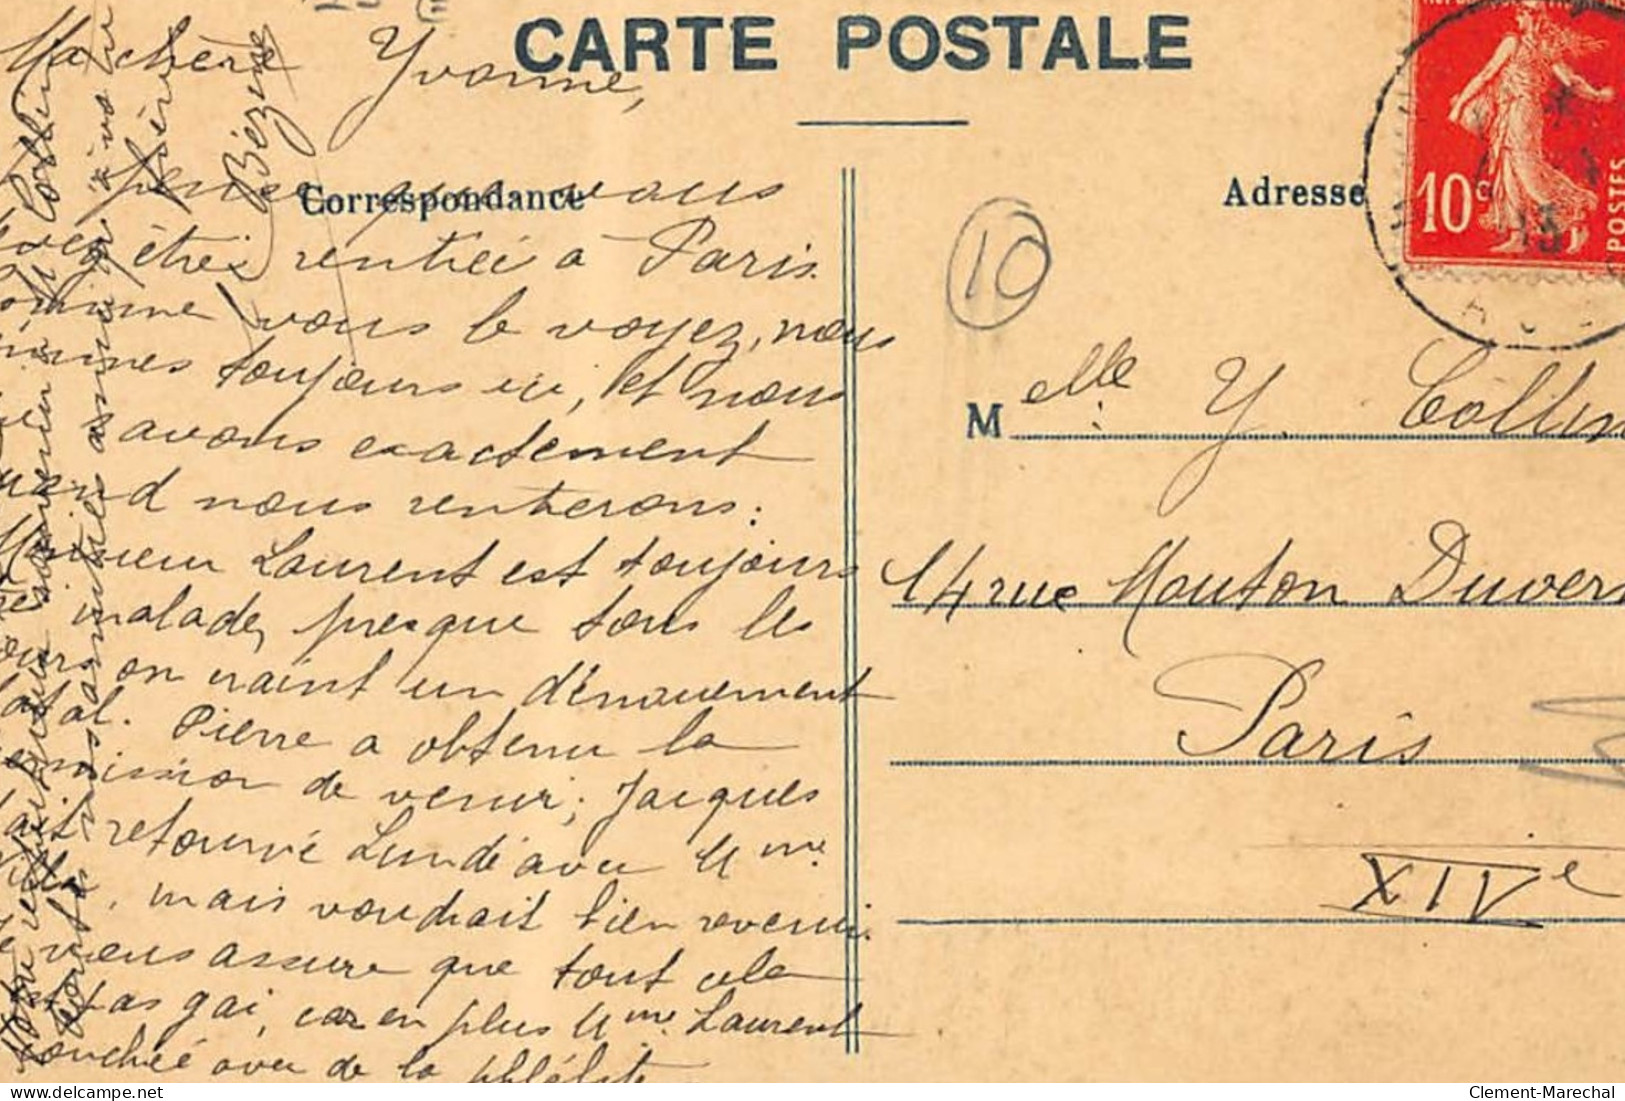 CARTE POSTALE
Ma chère Yvonne,
Correspondance
pense que vous
êtes rentrée à Paris.
Comme vous le voyez, nous
sommes toujours ici, et nous
savons exactement
quand nous rentrerons.
Monsieur Laurent est toujours
très malade, presque tous les
jours on craint un dénouement
fatal. Pierre a obtenu la
permission de venir; Jacques
était retourné Lundi avec Mme
, mais voudrait bien revenir.
Je vous assure que tout cela
est pas gai, car en plus Mme Laurent
couchée avec de la phlébite
Bézine
Adresse
10c
POSTES
13
10
M elle Y. Collin
14 rue Mouton Duver
Paris
XIVe
Clement-Marechal